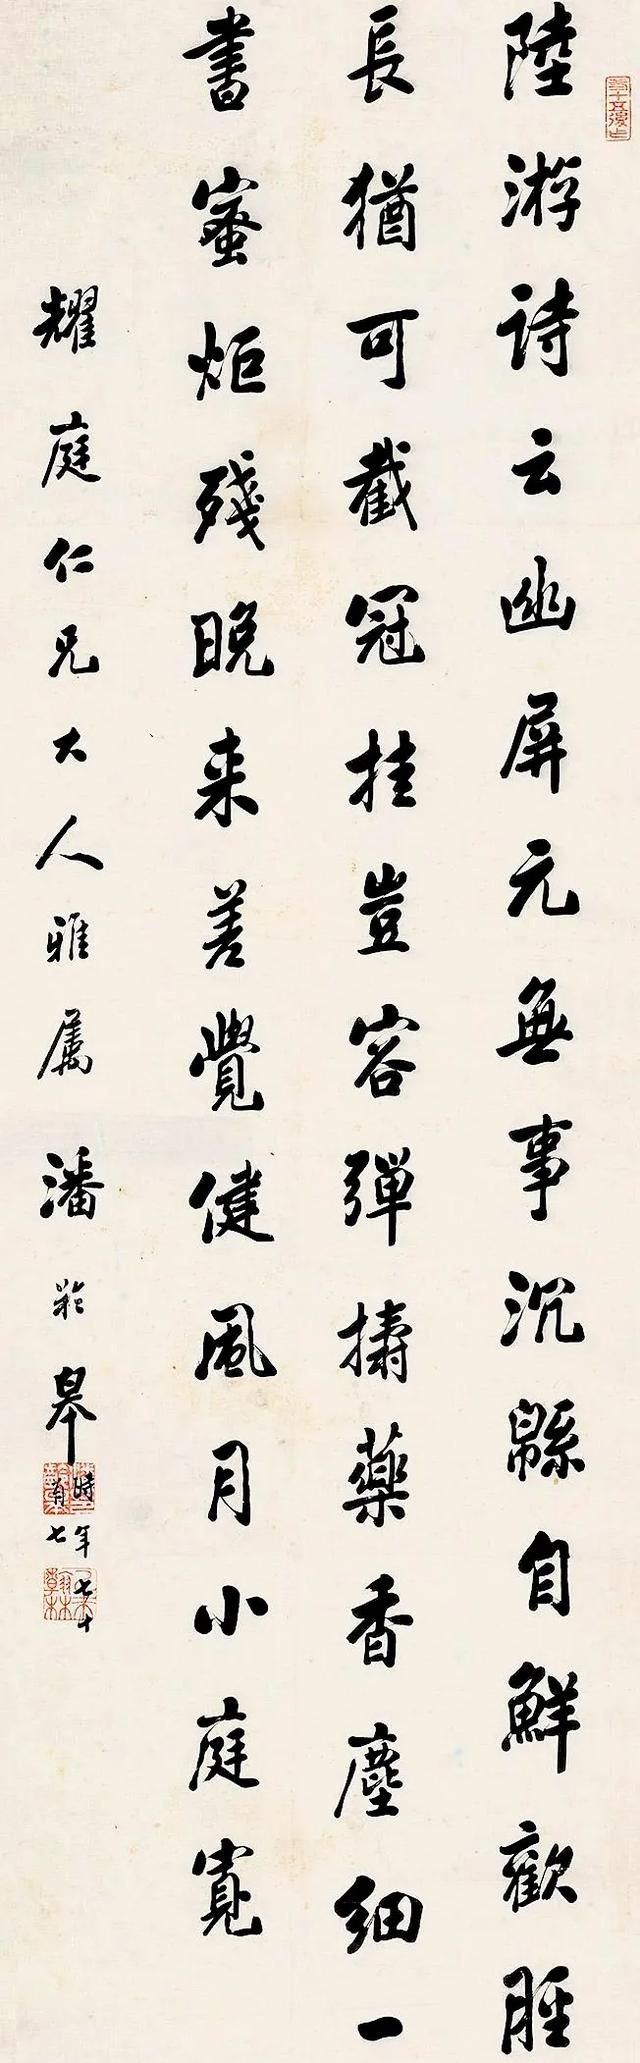 陸游詩云幽屏元無事沉緜自鮮歡脛
長猶可截冠挂豈容彈擣藥香塵細一
書蜜炬殘晚来差覺健風月小庭寬
耀庭仁兄大人雅属 潘齡皋 時年七十有七